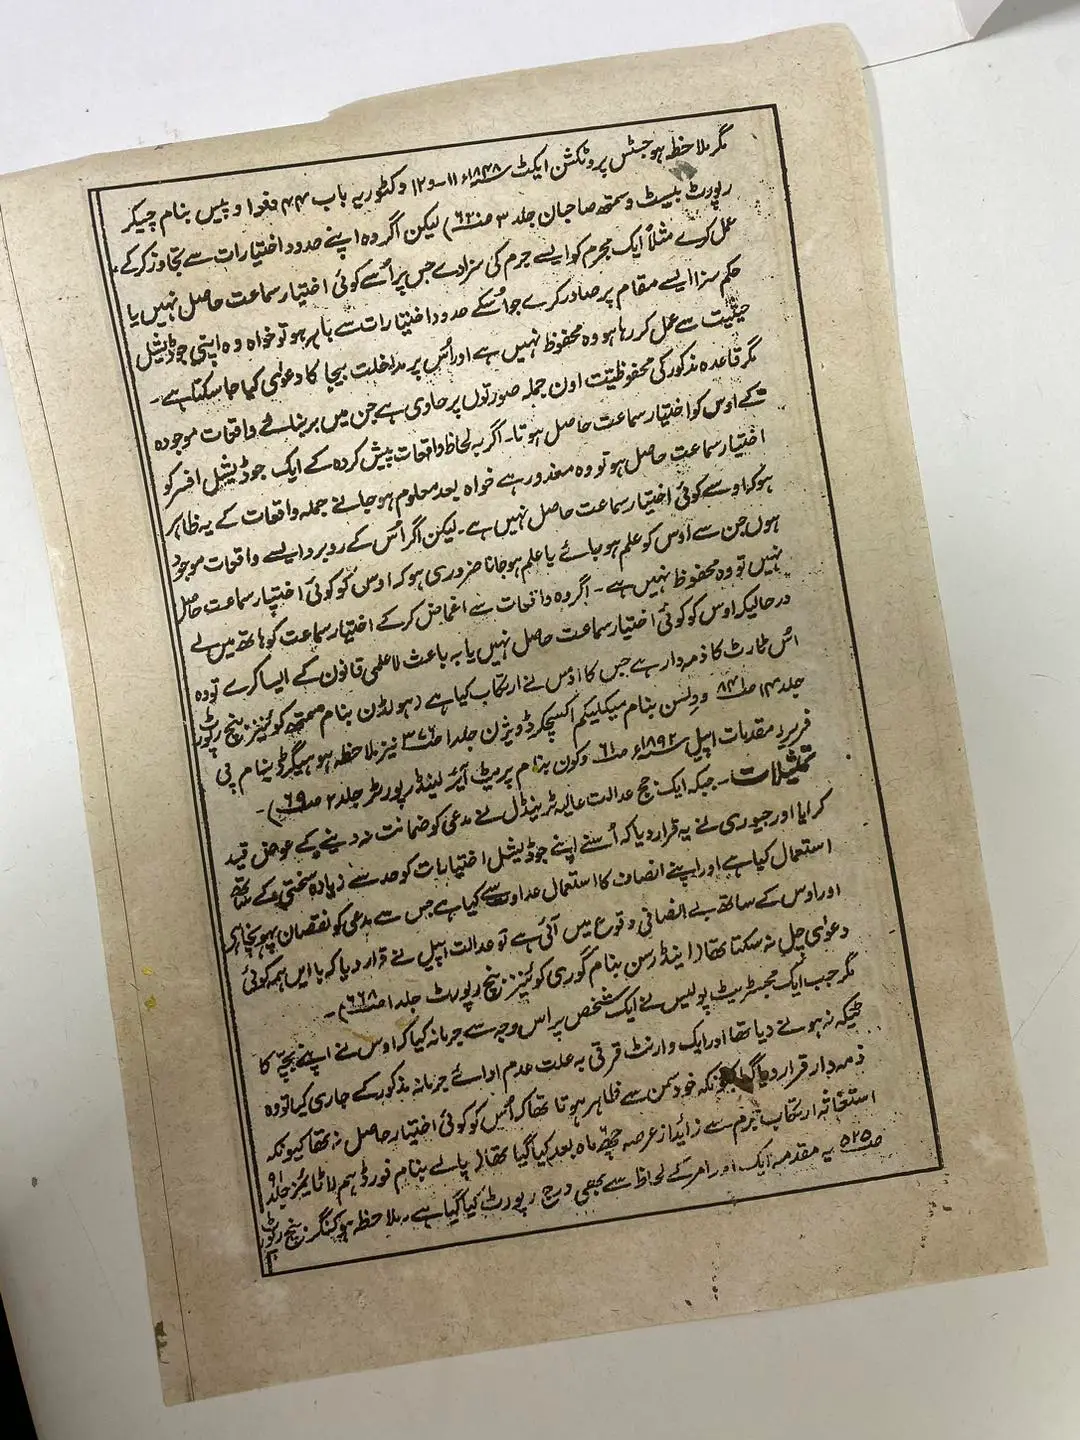 مگر ملاحظہ ہو جسٹس پروٹکشن ایکٹ ۱۸۴۸ء ۱۱-و۱۲ وکٹوریہ باب ۴۴ دفعہ ا و پیس بنام چیکر
رپورٹ بیسٹ وسمتھ صاحبان جلد ۳ صـ۶۲ـ) لیکن اگر وہ اپنے حدود اختیارات سے تجاوز کرکے
عمل کرے مثلاً ایک مجرم کو ایسے جرم کی سزادے جس پر اُسے کوئی اختیار سماعت حاصل نہیں یا
حکم سزا ایسے مقام پر صادر کرے جو اُسکے حدود اختیارات سے باہر ہو تو خواہ وہ اپنی جوڈیشل
حیثیت سے عمل کررہا ہو وہ محفوظ نہیں ہے اور اُس پر مداخلت بیجا کا دعویٰ کیا جاسکتا ہے۔
مگر قاعدہ مذکور کی محفوظیت اون جملہ صورتوں پر حاوی ہے جن میں بر بنائے واقعات موجودہ
کے اوس کو اختیار سماعت حاصل ہوتا۔ اگر بہ لحاظ واقعات پیش کردہ کے ایک جوڈیشل افسر کو
اختیار سماعت حاصل ہو تو وہ معذور ہے خواہ بعد معلوم ہوجانے جملہ واقعات کے یہ ظاہر
ہو کہ اوسے کوئی اختیار سماعت حاصل نہیں ہے۔ لیکن اگر اُس کے روبرو ایسے واقعات موجود
ہوں جن سے اوس کو علم ہوجائے یا علم ہوجانا ضروری ہو کہ اوس کو کوئی اختیار سماعت حاصل
نہیں تو وہ محفوظ نہیں ہے۔ اگر وہ واقعات سے اغماض کرکے اختیار سماعت کو ہاتھ میں لے
درحالیکہ اوس کو کوئی اختیار سماعت حاصل نہیں یا بہ باعث لاعلمی قانون کے ایسا کرے تو وہ
اُس ٹارٹ کا ذمہ دار ہے جس کا اوس نے ارتکاب کیا ہے (ہولڈن بنام سمتھ کوئینز بنچ رپورٹ
جلد ۱۴ صـ۸۴۱ـ و ولسن بنام میکلیکم اکسچکر ڈویژن جلد ۱ صـ۳۷۶ـ نیز ملاحظہ ہو ہیگرڈ بنام پی
فریرد مقدمات اپیل ۱۸۹۲ء صـ۶۱ـ وکون بنام پرمیٹ آئرلینڈ رپورٹر جلد ۲ صـ۶۹ـ)۔
تمثیلات۔ جبکہ ایک جج عدالت عالیہ ٹرینڈل نے مدعی کو ضمانت نہ دینے کے عوض قید
کرایا اور جیوری نے یہ قرار دیا کہ اُسنے اپنے جوڈیشل اختیارات کو حد سے زیادہ سختی کے ساتھ
استعمال کیا ہے اور اپنے انصاف کا استعمال عداوت سے کیا ہے جس سے مدعی کو نقصان پہونچا ہے
اور اوس کے ساتھ بے انصافی وقوع میں آئی ہے تو عدالت اپیل نے قرار دیا کہ باایں ہمہ کوئی
دعویٰ چل نہ سکتا تھا (اینڈرسن بنام گوری کوئینز بنچ رپورٹ جلد ۱ صـ۶۶۸ـ)۔
مگر جب ایک مجسٹریٹ پولیس نے ایک شخص پر اس وجہ سے جرمانہ کیا کہ اوس نے اپنے بچہ کا
ٹیکہ نہ ہونے دیا تھا اور ایک وارنٹ قرقی بہ علت عدم ادائے جرمانہ مذکور کے جاری کیا تو وہ
ذمہ دار قرار دیا گیا کیونکہ خود سمن سے ظاہر ہوتا تھا کہ اُس کو کوئی اختیار حاصل نہ تھا کیونکہ
استغاثہ ارتکاب جرم سے زائد از عرصہ چھ ماہ بعد کیا گیا تھا (پالے بنام فورڈہم لاٹائمز جلد ۹۱
صـ۵۲۵ـ یہ مقدمہ ایک اور امر کے لحاظ سے بھی درج رپورٹ کیا گیا ہے۔ ملاحظہ ہو کنگز بنچ رپورٹ